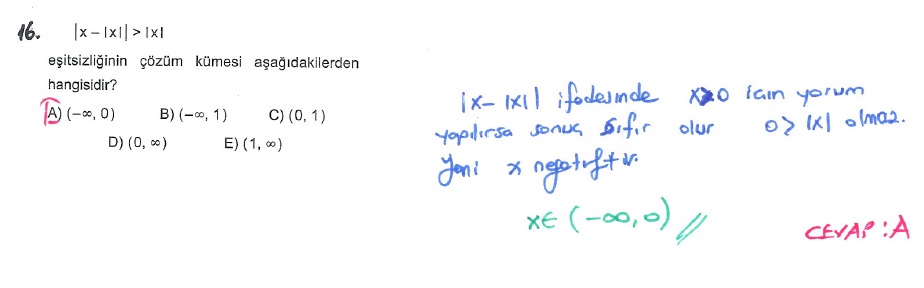 16. |x – |x|| > |x|
eşitsizliğinin çözüm kümesi aşağıdakilerden
hangisidir?
A) (–∞, 0) B) (–∞, 1) C) (0, 1)
D) (0, ∞) E) (1, ∞)
|x – |x|| ifadesinde x>0 için yorum
yapılırsa sonuç sıfır olur 0 > |x| olmaz.
Yani x negatiftir.
x∈ (–∞, 0) //
CEVAP : A